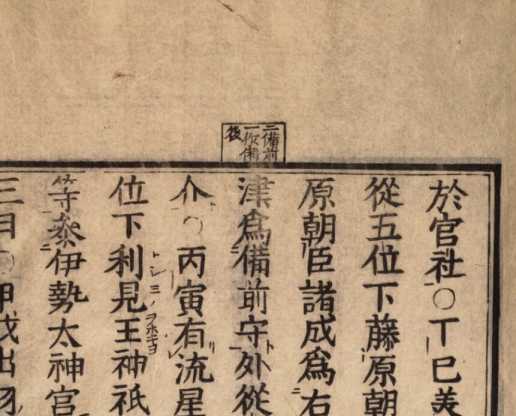 於官社○丁巳美
從五位下藤原朝
原朝臣諸成爲右
二備前
一作備
後
津爲備前守外從
介○丙寅有流星
位下利見王神祇
等叅伊勢太神宮
三日○甲戌出羽